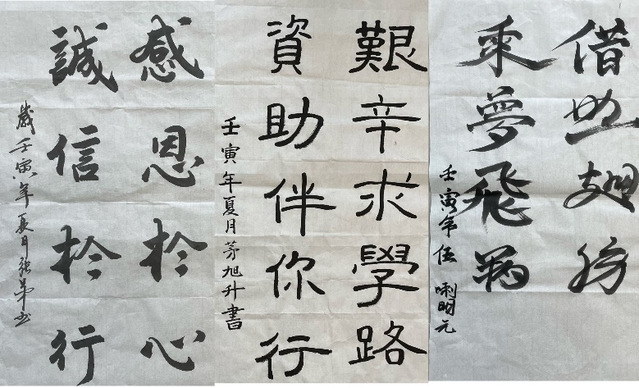 感恩於心
誠信於行
歲壬寅年夏月
艱辛求學路
資助伴你行
壬寅年夏月茅旭升書
借助翅膀
乘夢飛翔
壬寅年伍明元